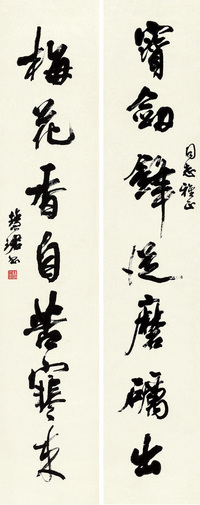 寶劍鋒從磨礪出
同志雅正
梅花香自苦寒來